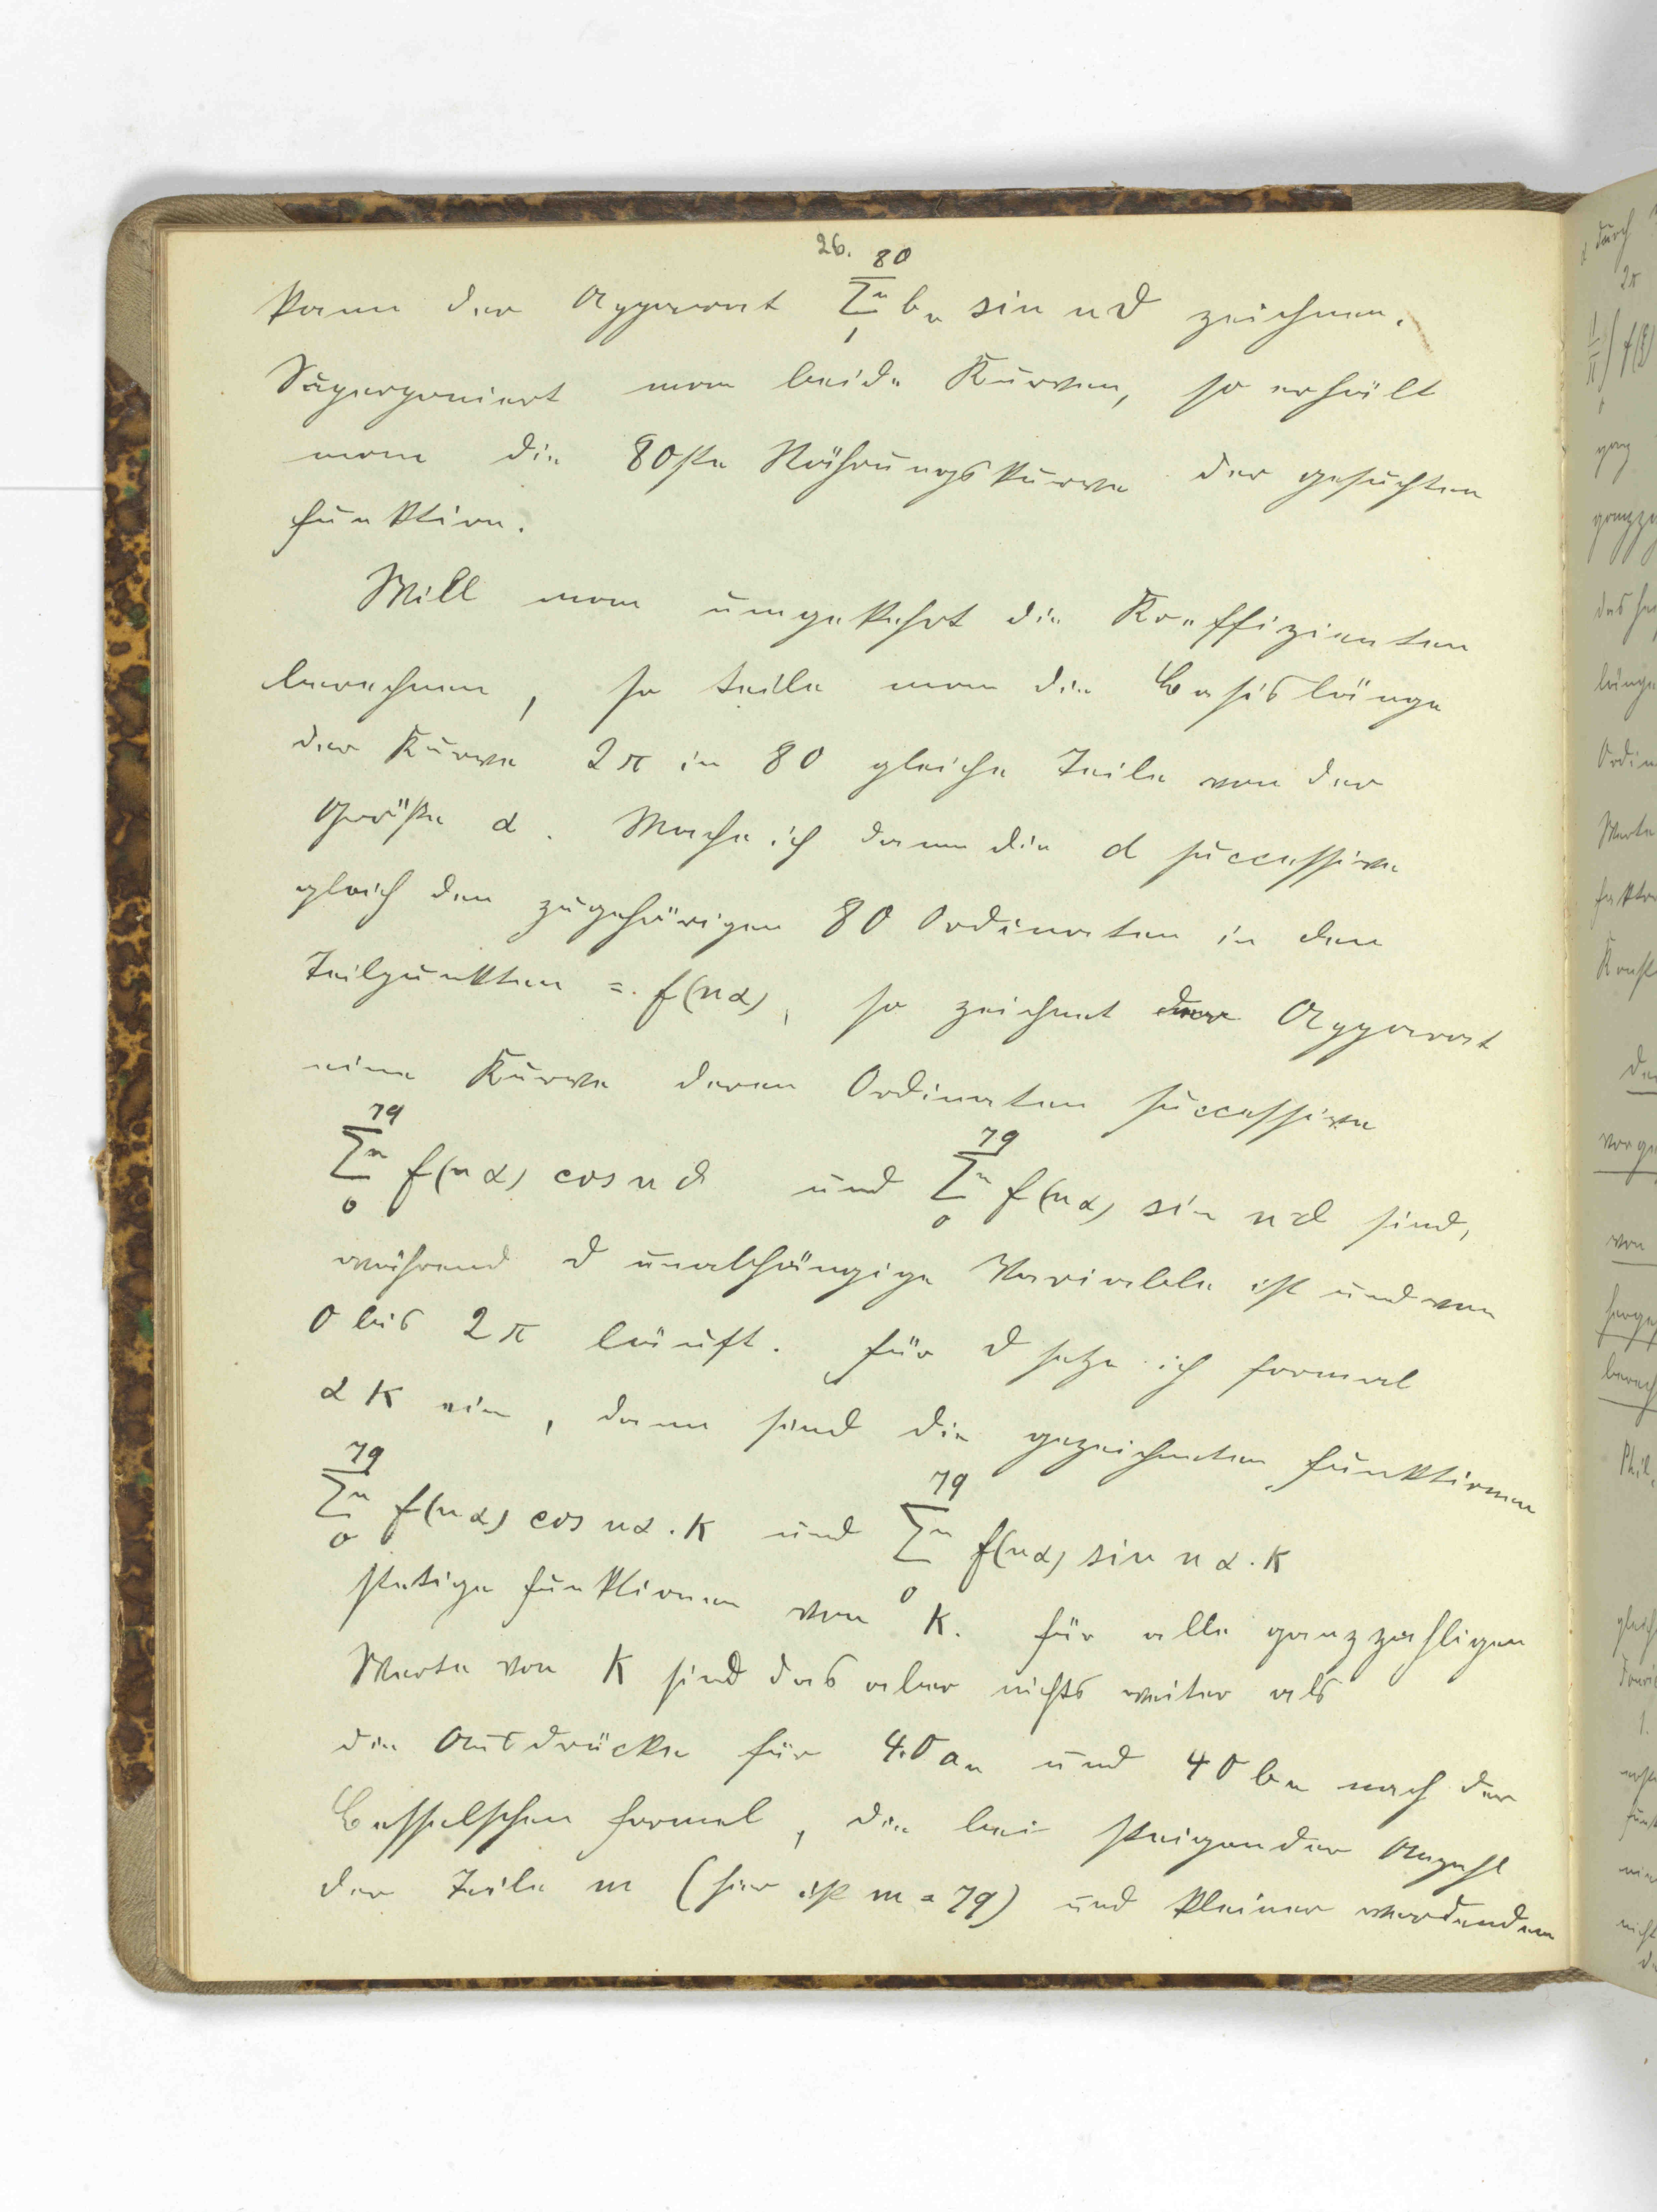 26.
kann der Apparat $\sum_{1}^{80}{}^{n}\, b_n \sin n\vartheta$ zeichnen.
Superponiert man beide Kurven, so erhält
man die 80ste Näherungskurve der gesuchten
Funktion.
Will man umgekehrt die Koeffizienten
berechnen, so teile man die Basislänge
der Kurve 2π in 80 gleiche Teile von der
Größe α. Mache ich dann die d successive
gleich den zugehörigen 80 Ordinaten in den
Teilpunkten = f(nα), so zeichnet der Apparat
eine Kurve deren Ordinaten successive
$\sum_{0}^{79}{}^{n}\, f(n\alpha) \cos n\vartheta$ und $\sum_{0}^{79}{}^{n}\, f(n\alpha) \sin n\vartheta$ sind,
während ϑ unabhängige Variable ist und von
0 bis 2π läuft. Für ϑ setze ich formal
α K ein, dann sind die gezeichneten Funktionen
$\sum_{0}^{79}{}^{n}\, f(n\alpha) \cos n\alpha . K$ und $\sum_{0}^{79}{}^{n}\, f(n\alpha) \sin n\alpha . K$
stetige Funktionen von K. Für alle ganzzahligen
Werte von K sind das aber nichts weiter als
die Ausdrücke für 40 aₙ und 40 bₙ nach der
Besselschen Formel, die bei steigender Anzahl
der Teile m (hier ist m = 79) und kleiner werdendem
durch
2π
gang
ganzza
länge
Ordin
Werte
vorge
von
berech
Phil.
gleich
1.
nicht